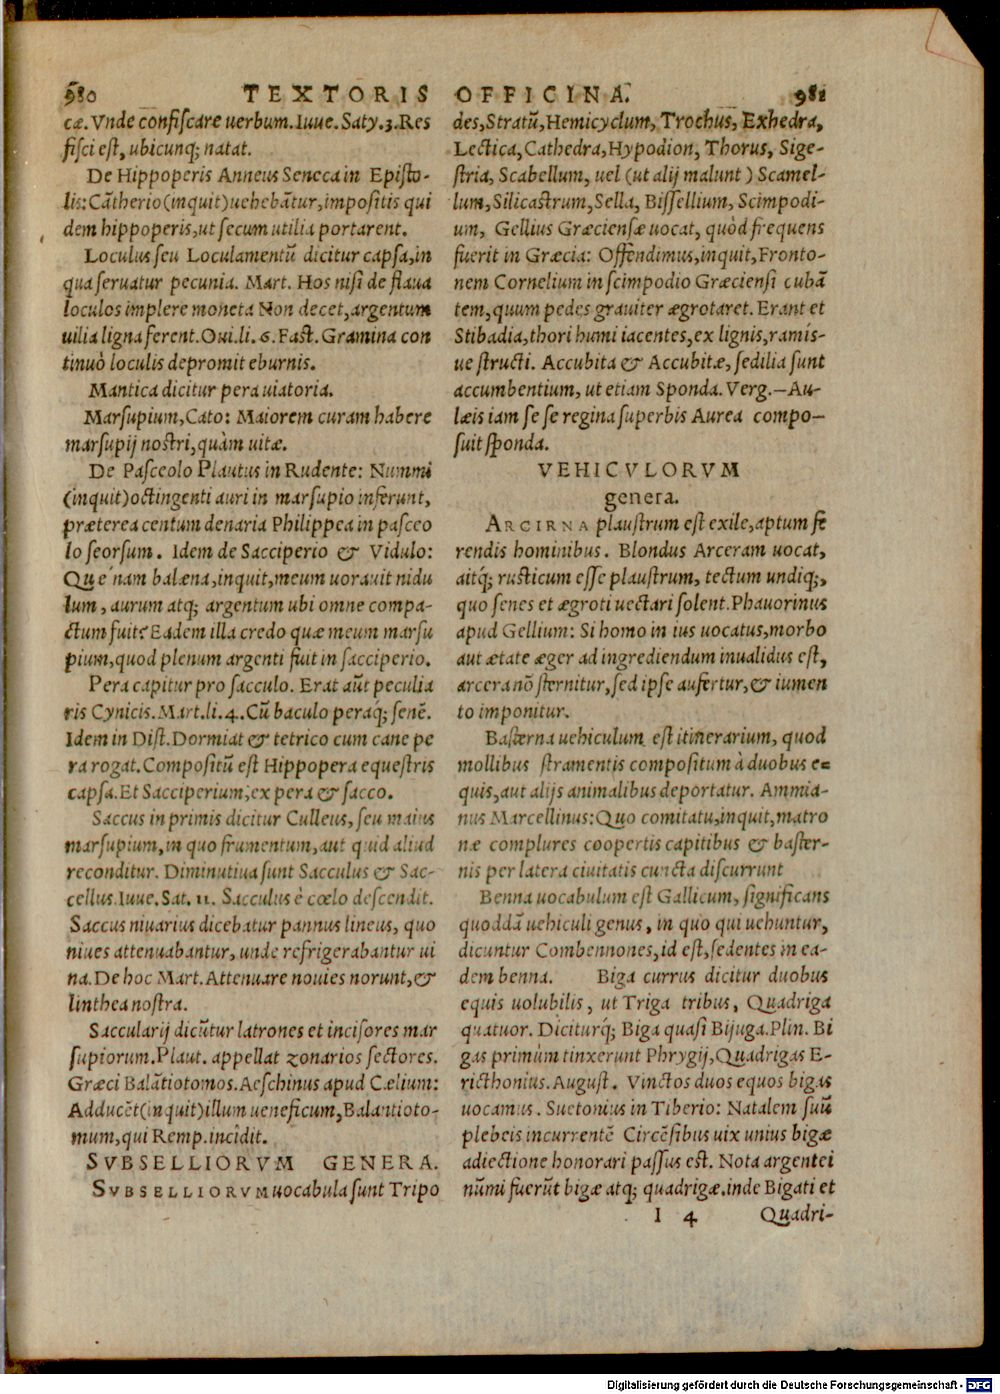 980 TEXTORIS OFFICINA. 981
cæ. Vnde confiscare uerbum. Iuue. Saty. 3. Res
fisci est, ubicunq; natat.
De Hippoperis Anneus Seneca in Episto-
lis: Cātherio (inquit) uehebātur, impositis qui
dem hippoperis, ut secum utilia portarent.
Loculus seu Loculamentū dicitur capsa, in
qua seruatur pecunia. Mart. Hos nisi de flaua
loculos implere moneta Non decet, argentum
uilia ligna ferent. Oui. li. 6. Fast. Gramina con
tinuò loculis depromit eburnis.
Mantica dicitur pera uiatoria.
Marsupium, Cato: Maiorem curam habere
marsupij nostri, quàm uitæ.
De Pasceolo Plautus in Rudente: Nummi
(inquit) octingenti auri in marsupio inferunt,
præterea centum denaria Philippea in pasceo
lo seorsum. Idem de Sacciperio & Vidulo:
Quę nam balæna, inquit, meum uorauit nidu
lum, aurum atq; argentum ubi omne compa-
ctum fuit? Eadem illa credo quæ meum marsu
pium, quod plenum argenti fuit in sacciperio.
Pera capitur pro sacculo. Erat aūt peculia
ris Cynicis. Mart. li. 4. Cū baculo peraq; senē.
Idem in Dist. Dormiat & tetrico cum cane pe
ra rogat. Compositū est Hippopera equestris
capsa. Et Sacciperium, ex pera & sacco.
Saccus in primis dicitur Culleus, seu maius
marsupium, in quo frumentum, aut quid aliud
reconditur. Diminutiua sunt Sacculus & Sac-
cellus. Iuue. Sat. 11. Sacculus è cœlo descendit.
Saccus niuarius dicebatur pannus lineus, quo
niues attenuabantur, unde refrigerabantur ui
na. De hoc Mart. Attenuare nouies norunt, &
linthea nostra.
Saccularij dicūtur latrones et incisores mar
supiorum. Plaut. appellat zonarios sectores.
Græci Balātiotomos. Aeschinus apud Cælium:
Adducēt (inquit) illum ueneficum, Balantioto-
mum, qui Remp. incidit.
SVBSELLIORVM GENERA.
SVBSELLIORVM uocabula sunt Tripo
des, Stratū, Hemicyclum, Trochus, Exhedra,
Lectica, Cathedra, Hypodion, Thorus, Sige-
stria, Scabellum, uel (ut alij malunt) Scamel-
lum, Silicastrum, Sella, Bissellium, Scimpodi-
um, Gellius Græciensæ uocat, quòd frequens
fuerit in Græcia: Offendimus, inquit, Fronto-
nem Cornelium in scimpodio Græciensi cubā
tem, quum pedes grauiter ægrotaret. Erant et
Stibadia, thori humi iacentes, ex lignis, ramis-
ue structi. Accubita & Accubitæ, sedilia sunt
accumbentium, ut etiam Sponda. Verg. —Au-
læis iam se se regina superbis Aurea compo-
suit sponda.
VEHICVLORVM
genera.
ARCIRNA plaustrum est exile, aptum fe
rendis hominibus. Blondus Arceram uocat,
aitq́; rusticum esse plaustrum, tectum undiq;,
quo senes et ægroti uectari solent. Phauorinus
apud Gellium: Si homo in ius uocatus, morbo
aut ætate æger ad ingrediendum inualidus est,
arcera nō sternitur, sed ipse aufertur, & iumen
to imponitur.
Basterna uehiculum est itinerarium, quod
mollibus stramentis compositum à duobus e-
quis, aut alijs animalibus deportatur. Ammia-
nus Marcellinus: Quo comitatu, inquit, matro
næ complures coopertis capitibus & baster-
nis per latera ciuitatis cuncta discurrunt
Benna uocabulum est Gallicum, significans
quoddā uehiculi genus, in quo qui uehuntur,
dicuntur Combennones, id est, sedentes in ea-
dem benna. Biga currus dicitur duobus
equis uolubilis, ut Triga tribus, Quadriga
quatuor. Diciturq́; Biga quasi Bijuga. Plin. Bi
gas primùm tinxerunt Phrygij, Quadrigas E-
ricthonius. August. Vinctos duos equos bigas
uocamus. Suetonius in Tiberio: Natalem suū
plebeis incurrentē Circēsibus uix unius bigæ
adiectione honorari passus est. Nota argentei
nūmi fuerūt bigæ atq; quadrigæ. inde Bigati et
I 4 Quadri-
Digitalisierung gefördert durch die Deutsche Forschungsgemeinschaft - DFG